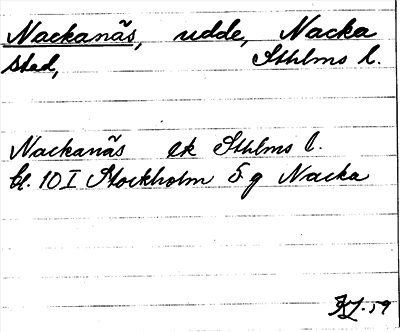 Nackanäs, udde, Nacka
stad, Sthlms l.
Nackanäs ek Sthlms l.
bl. 10 I Stockholm 5 g Nacka
KL-59